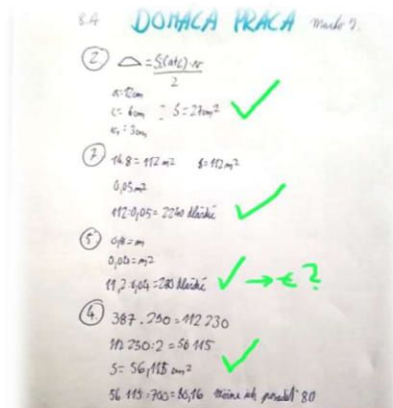 8.A DOMÁCA PRÁCA Marko J.
2 S=(a+c)·v
2
a=12cm
c= 6cm S=27cm²
v= 3cm
7 14.8=112m² S=112m²
0,05m²
112:0,05=2240 dlaždíc
5
11,2:0,04=280 dlaždíc → € ?
4 387.290=112 230
112 230:2=56 115
S=56,115 cm²
56 115:700=80,16 80